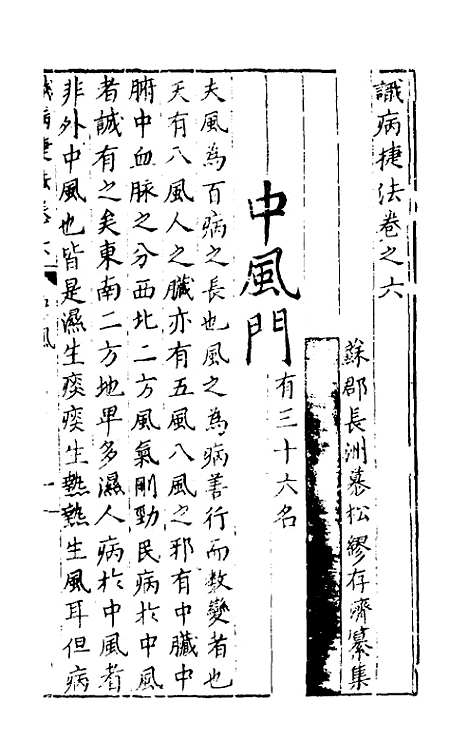 識病捷法卷之六
蘇郡長洲慕松繆存濟纂集
中風門
有三十六名
夫風為百病之長也風之為病善行而數變者也
天有八風人之臟亦有五風八風之邪有中臟中
腑中血脉之分西北二方風氣剛勁民病於中風
者誠有之矣東南二方地卑多濕人病於中風者
非外中風也皆是濕生痰痰生熱熱生風耳但病
識病捷法卷六
中風